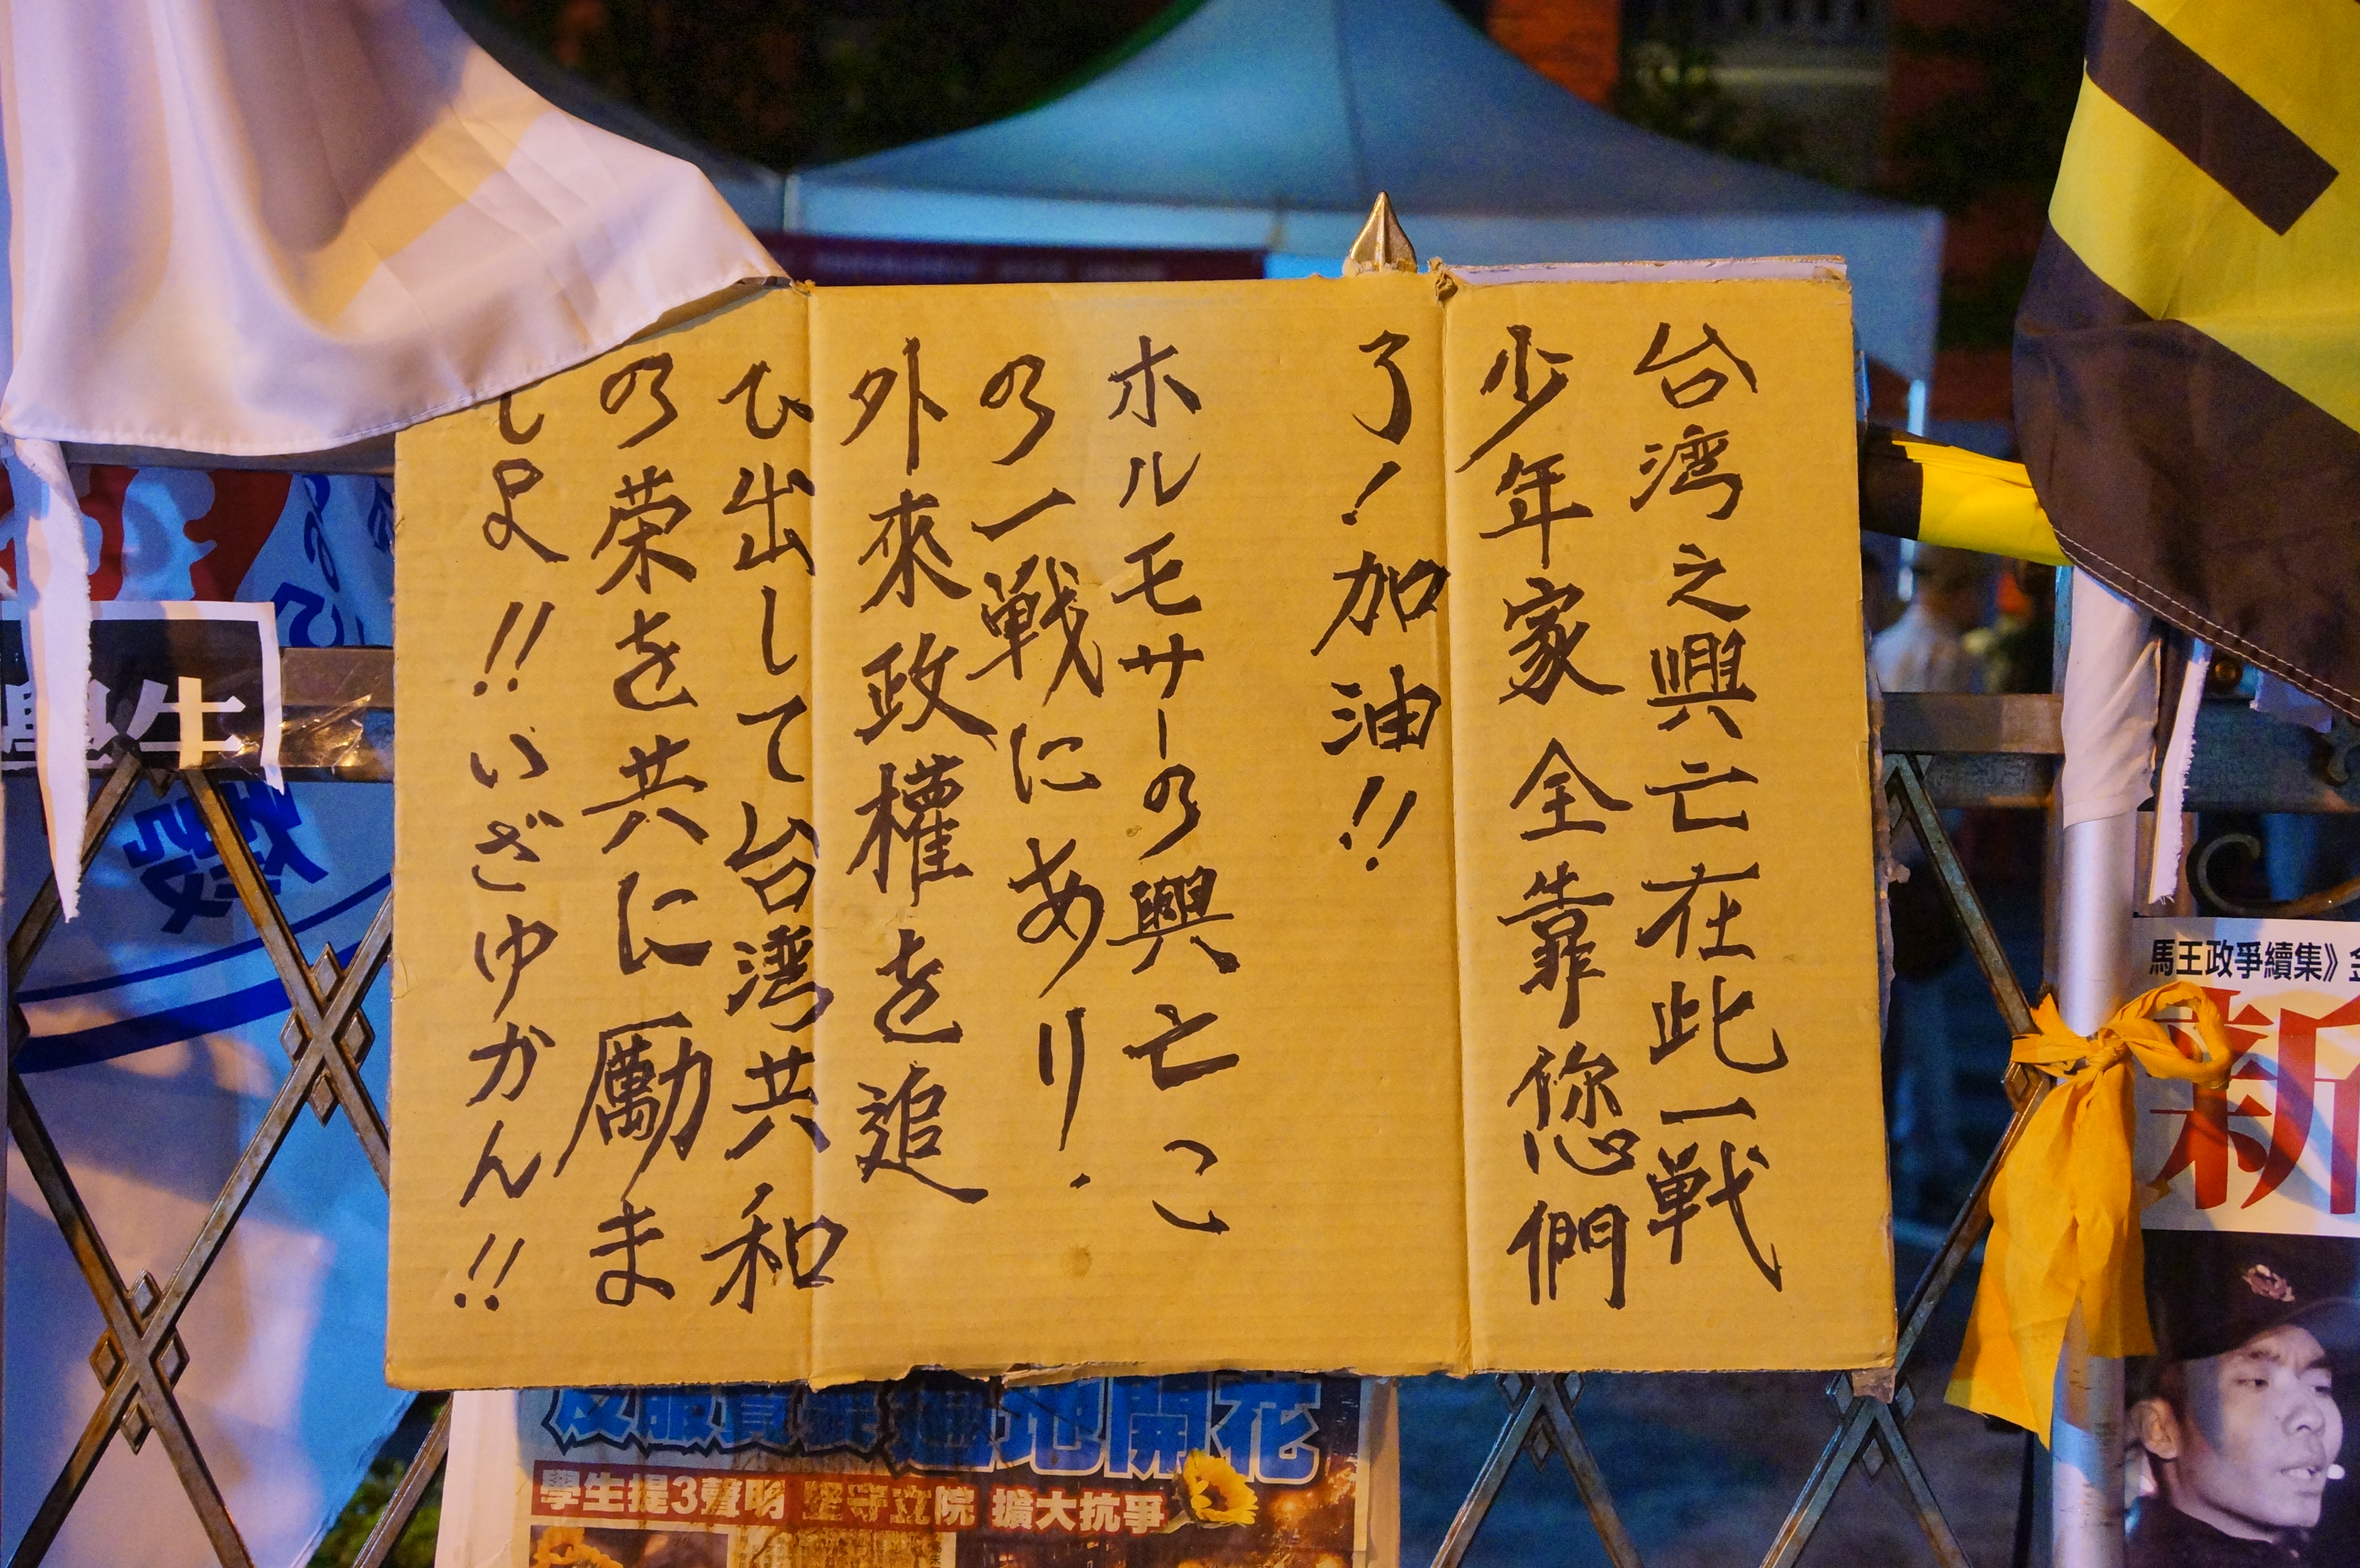 台湾之興亡在此一戦
少年家全靠您們
了!加油!!
ホルモサーの興亡こ
の一戦にあり.
外來政權を追
ひ出して台湾共和
の栄を共に励ま
しよ!!いざゆかん!!
學生
馬王政爭續集》
新
遍地開花
學生提3聲明 堅守立院 擴大抗爭